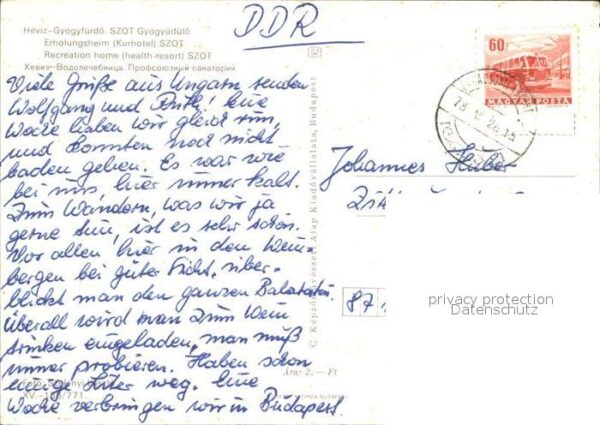 DDR
Hévíz-Gyógyfürdő. SZOT Gyógyüdülő
Erholungsheim (Kurhotel) SZOT
Recreation home (health-resort) SZOT
Хевиз-Водолечебница. Профсоюзный санаторий
Viele Grüße aus Ungarn senden
Wolfgang und Ruth! Eine
Woche haben wir gleich rum,
und konnten noch nicht
baden gehen. Es war wie
bei uns hier immer kalt.
Zum Wandern, was wir ja
gerne tun, ist es sehr schön.
Vor allen hier in den Wein-
bergen bei guter Sicht, über-
blickt man den ganzen Balaton.
Überall wird man zum Wein
trinken eingeladen, man muß
immer probieren. Haben schon
einige Liter weg. Eine
Woche verbringen wir in Budapest.
XV.-
/771.
Képzőművészeti Alap Kiadóvállalata, Budapest
Ára: 2,- Ft
60f
MAGYAR POSTA
Johannes Huber
87
privacy protection
Datenschutz